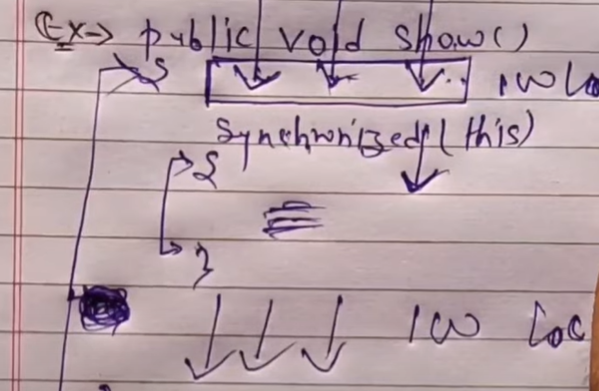 Ex→ public void show()
{
10 Lo
Synchronized (this)
{
}
10 Loc